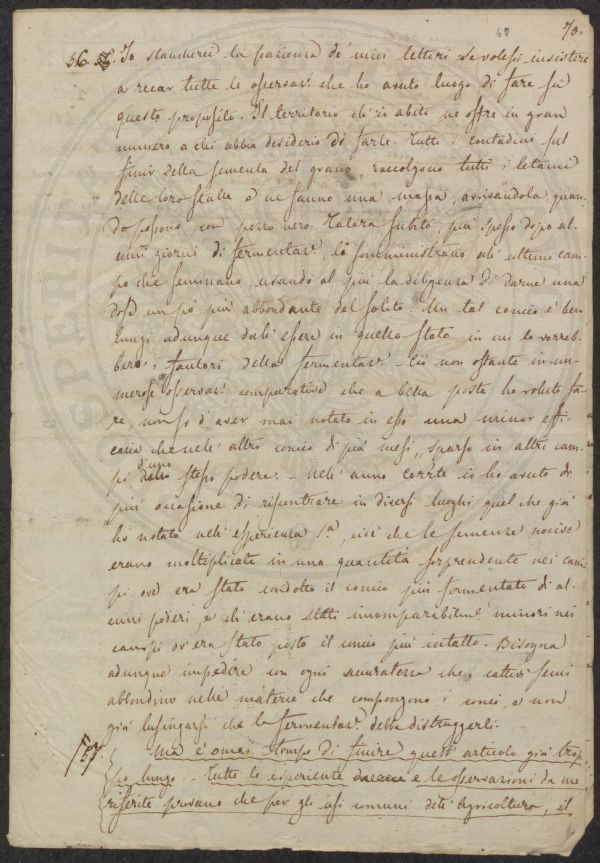 48 70.
56. Io stancherei la pazienza de' miei lettori se volessi insistere
a recar tutte le osservaz.i che ho avuto luogo di fare su
questo proposito. Il territorio ch'io abito ne offre in gran
numero a chi abbia desiderio di farle. Tutti i contadini sul
finir della sementa del grano, raccolgono tutti i letami
delle loro stalle e ne fanno una massa, arrivandola quan-
do possono, con pozzo nero. Talora subito, più spesso dopo al-
cuni giorni di fermentaz.e lo somministrano all'ultimo cam-
po che seminano, usando al più la diligenza di darne una
dose un po' più abbondante del solito. Un tal concio è ben
lungi adunque dall'essere in quello stato in cui lo vorreb-
bero i fautori della fermentaz.e - Ciò non ostante in nu-
merose osservaz.i comparative che a bella posta ho voluto fa-
re, non so d'aver mai notato in esso una minor effi-
cacia che nell'altro concio di più mesi, sparso in altri cam-
pi d'uno stesso podere. - Nell'anno corr.te io ho avuto di
più occasione di riscontrare in diversi luoghi quel che già
ho notato nell'esperienza 1.a, cioè che le semenze nocive
erano moltiplicate in una quantità sorprendente nei cam-
pi ove era stato condotto il concio più fermentato di al-
cuni poderi, e ch'erano state incomparabilm.e minori nei
campi ov'era stato posto il concio più intatto. Bisogna
adunque impedire con ogni accuratezza che i cattivi semi
abbondino nelle materie che compongono i conci, e non
già lusingarsi che la fermentaz.e debba distruggerli.
57. Ma è omai tempo di finire quest'articolo già trop-
po lungo. - Tutte le esperienze e le osservazioni da me
riferite provano che per gli usi comuni dell'Agricoltura, il